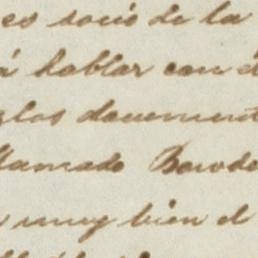 es socio de la
á hablar con é
los document
llamado Bowde
muy bien el